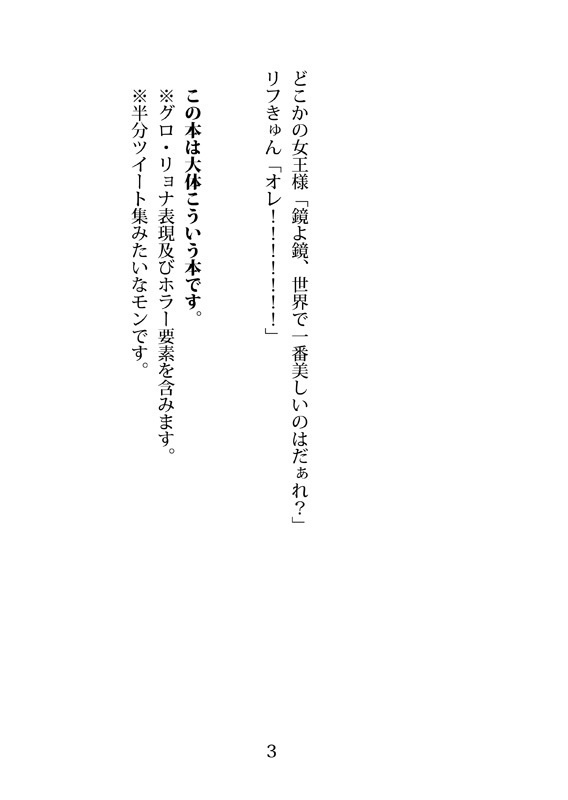 どこかの女王様「鏡よ鏡、世界で一番美しいのはだぁれ？」
リフきゅん「オレ！！！！！！！」
この本は大体こういう本です。
※グロ・リョナ表現及びホラー要素を含みます。
※半分ツイート集みたいなモンです。
3